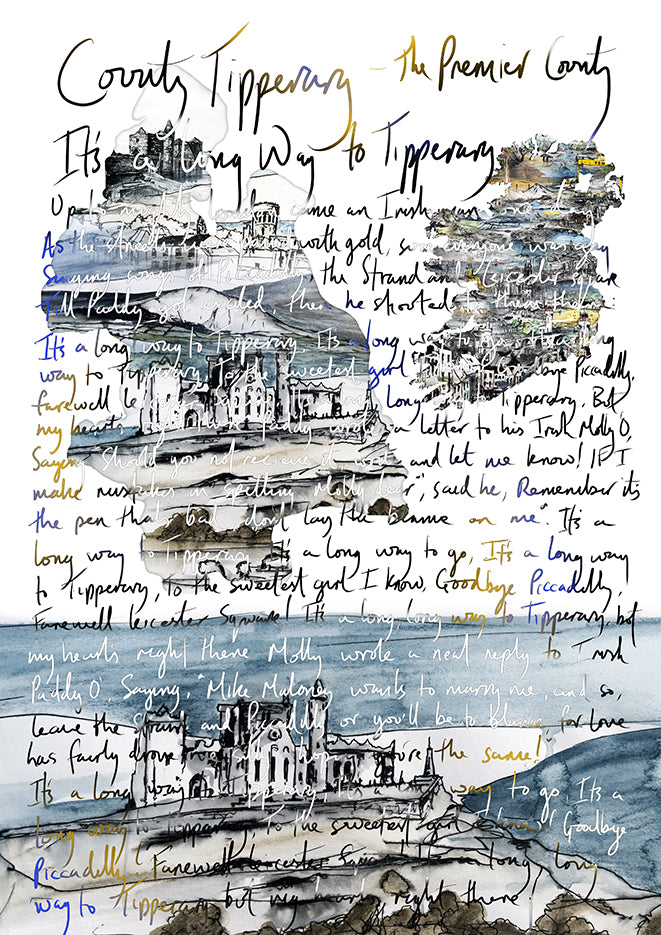 County Tipperary - The Premier County
It's a long Way to Tipperary
Up to came an Irish man one day
As the streets with gold, so everyone was gay
Singing songs of Piccadilly, the Strand and Leicester square
Till Paddy got excited, then he shouted to them there:
It's a long way to Tipperary, It's a long way to go. It's a long
way to Tipperary, to the sweetest girl Goodbye Piccadilly,
farewell Long Tipperary, But
my hearts right Paddy wrote a letter to his Irish Molly O,
Saying Should you not recieve it, write and let me know! If I
make mistakes in spelling Molly dear", said he, Remember its
the pen thats bad don't lay the blame on me". It's a
long way to Tipperary It's a long way to go, It's a long way
to Tipperary, to the sweetest girl I know, Goodbye Piccadilly,
Farewell Leicester Square! It's a long long way to Tipperary, but
my hearts right there Molly wrote a neat reply to Irish
Paddy O, Saying, "Mike Maloney wants to marry me, and so,
leave the Strand and Piccadilly or you'll be to blame for love
has fairly drove me the same!"
It's a long way to Tipperary, It's a long way to go It's a
long way to Tipperary, to the sweetest girl I know! Goodbye
Piccadilly! Farewell Leicester Square! It's a long, long
way to Tipperary but my hearts right there!